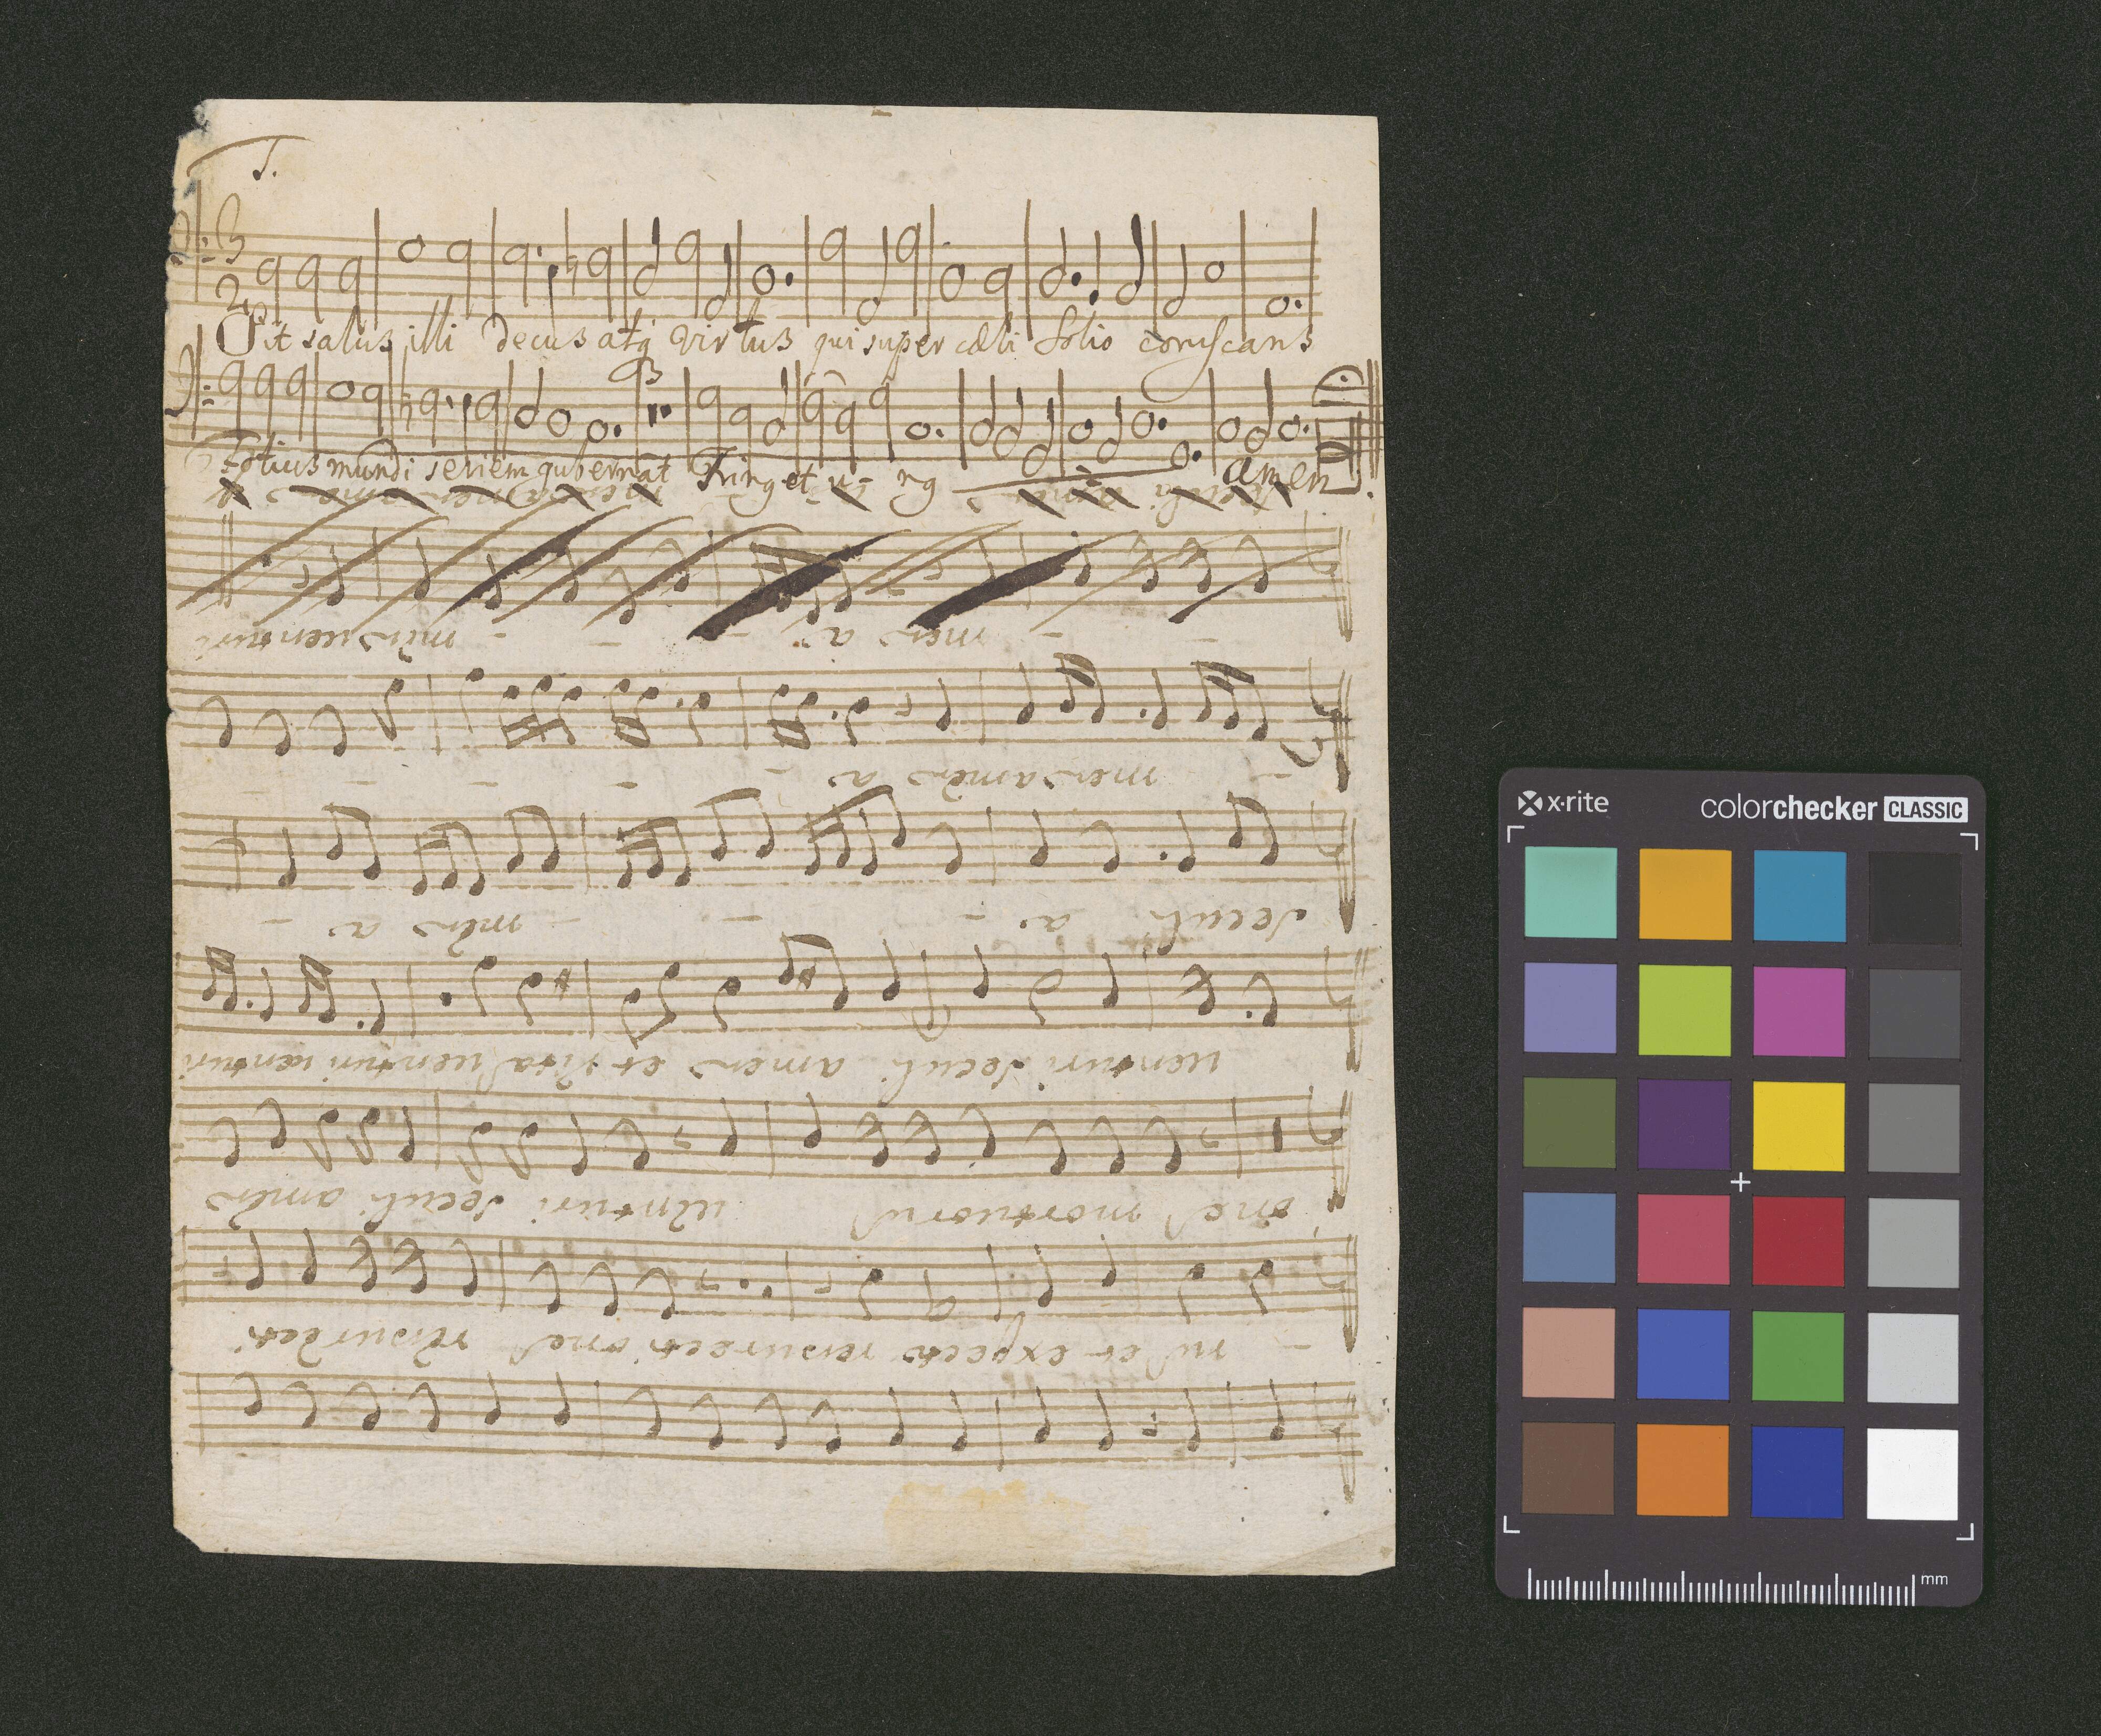 5.
3
2
Sit salus illi decus atq virtus qui super cæli solio coruscans
totius mundi seriem gubernat Trin9 et u - n9 amen
- - men a - - men uenturi
- men amen a - - - - -
seculi a - - - men a -
uenturi seculi amen et vita uenturi uenturi
one mortuorũ uenturi seculi amen
- rũ et expecto resurectionẽ resurecti
x·rite
colorchecker CLASSIC
mm